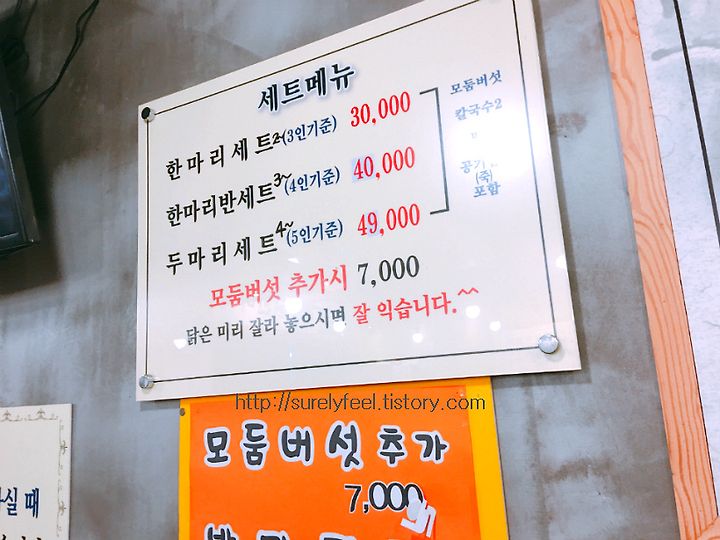 세트메뉴
한마리세트 2~(3인기준) 30,000
한마리반세트 3~(4인기준) 40,000
두마리세트 4~(5인기준) 49,000
모둠버섯
칼국수2
(죽)
포함
모둠버섯 추가시 7,000
닭은 미리 잘라 놓으시면 잘 익습니다.^^
http://surelyfeel.tistory.com
모둠버섯추가
7,000
실 때